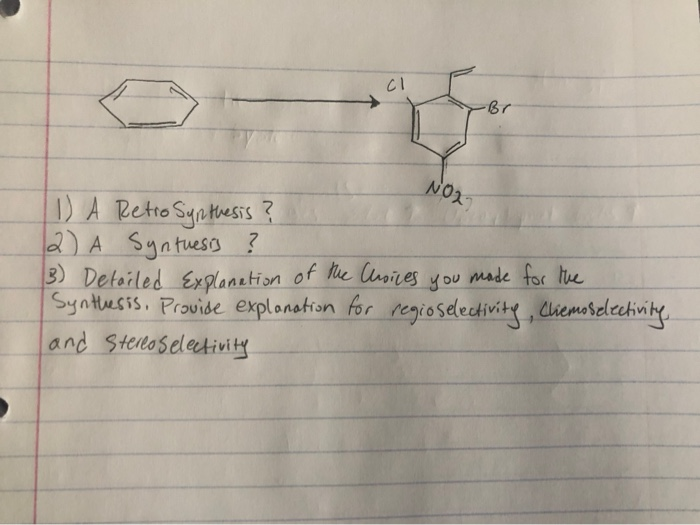 Cl
Br
NO2
1) A RetroSynthesis ?
2) A Syntuesis ?
3) Detailed Explanation of the Choices you made for the
Synthesis. Provide explanation for regioselectivity, Chemoselectivity,
and Stereoselectivity